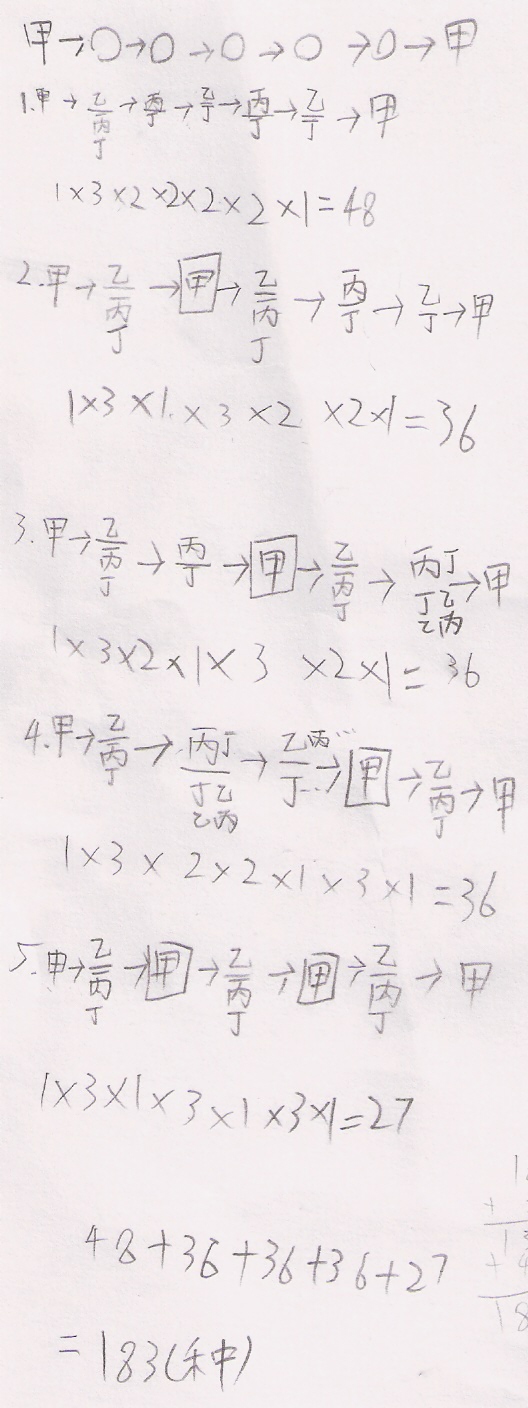 甲→○→○→○→○→○→甲
1.甲→乙丙丁→丙丁→乙丁→丙丁→乙丁→甲
1×3×2×2×2×2×1=48
2.甲→乙丙丁→甲→乙丙丁→丙丁→乙丁→甲
1×3×1×3×2×2×1=36
3.甲→乙丙丁→丙丁→甲→乙丙丁→丙丁丁乙乙丙→甲
1×3×2×1×3×2×1=36
4.甲→乙丙丁→丙丁丁乙乙丙→乙丙…丁…→甲→乙丙丁→甲
1×3×2×2×1×3×1=36
5.甲→乙丙丁→甲→乙丙丁→甲→乙丙丁→甲
1×3×1×3×1×3×1=27
48+36+36+36+27
=183(种)